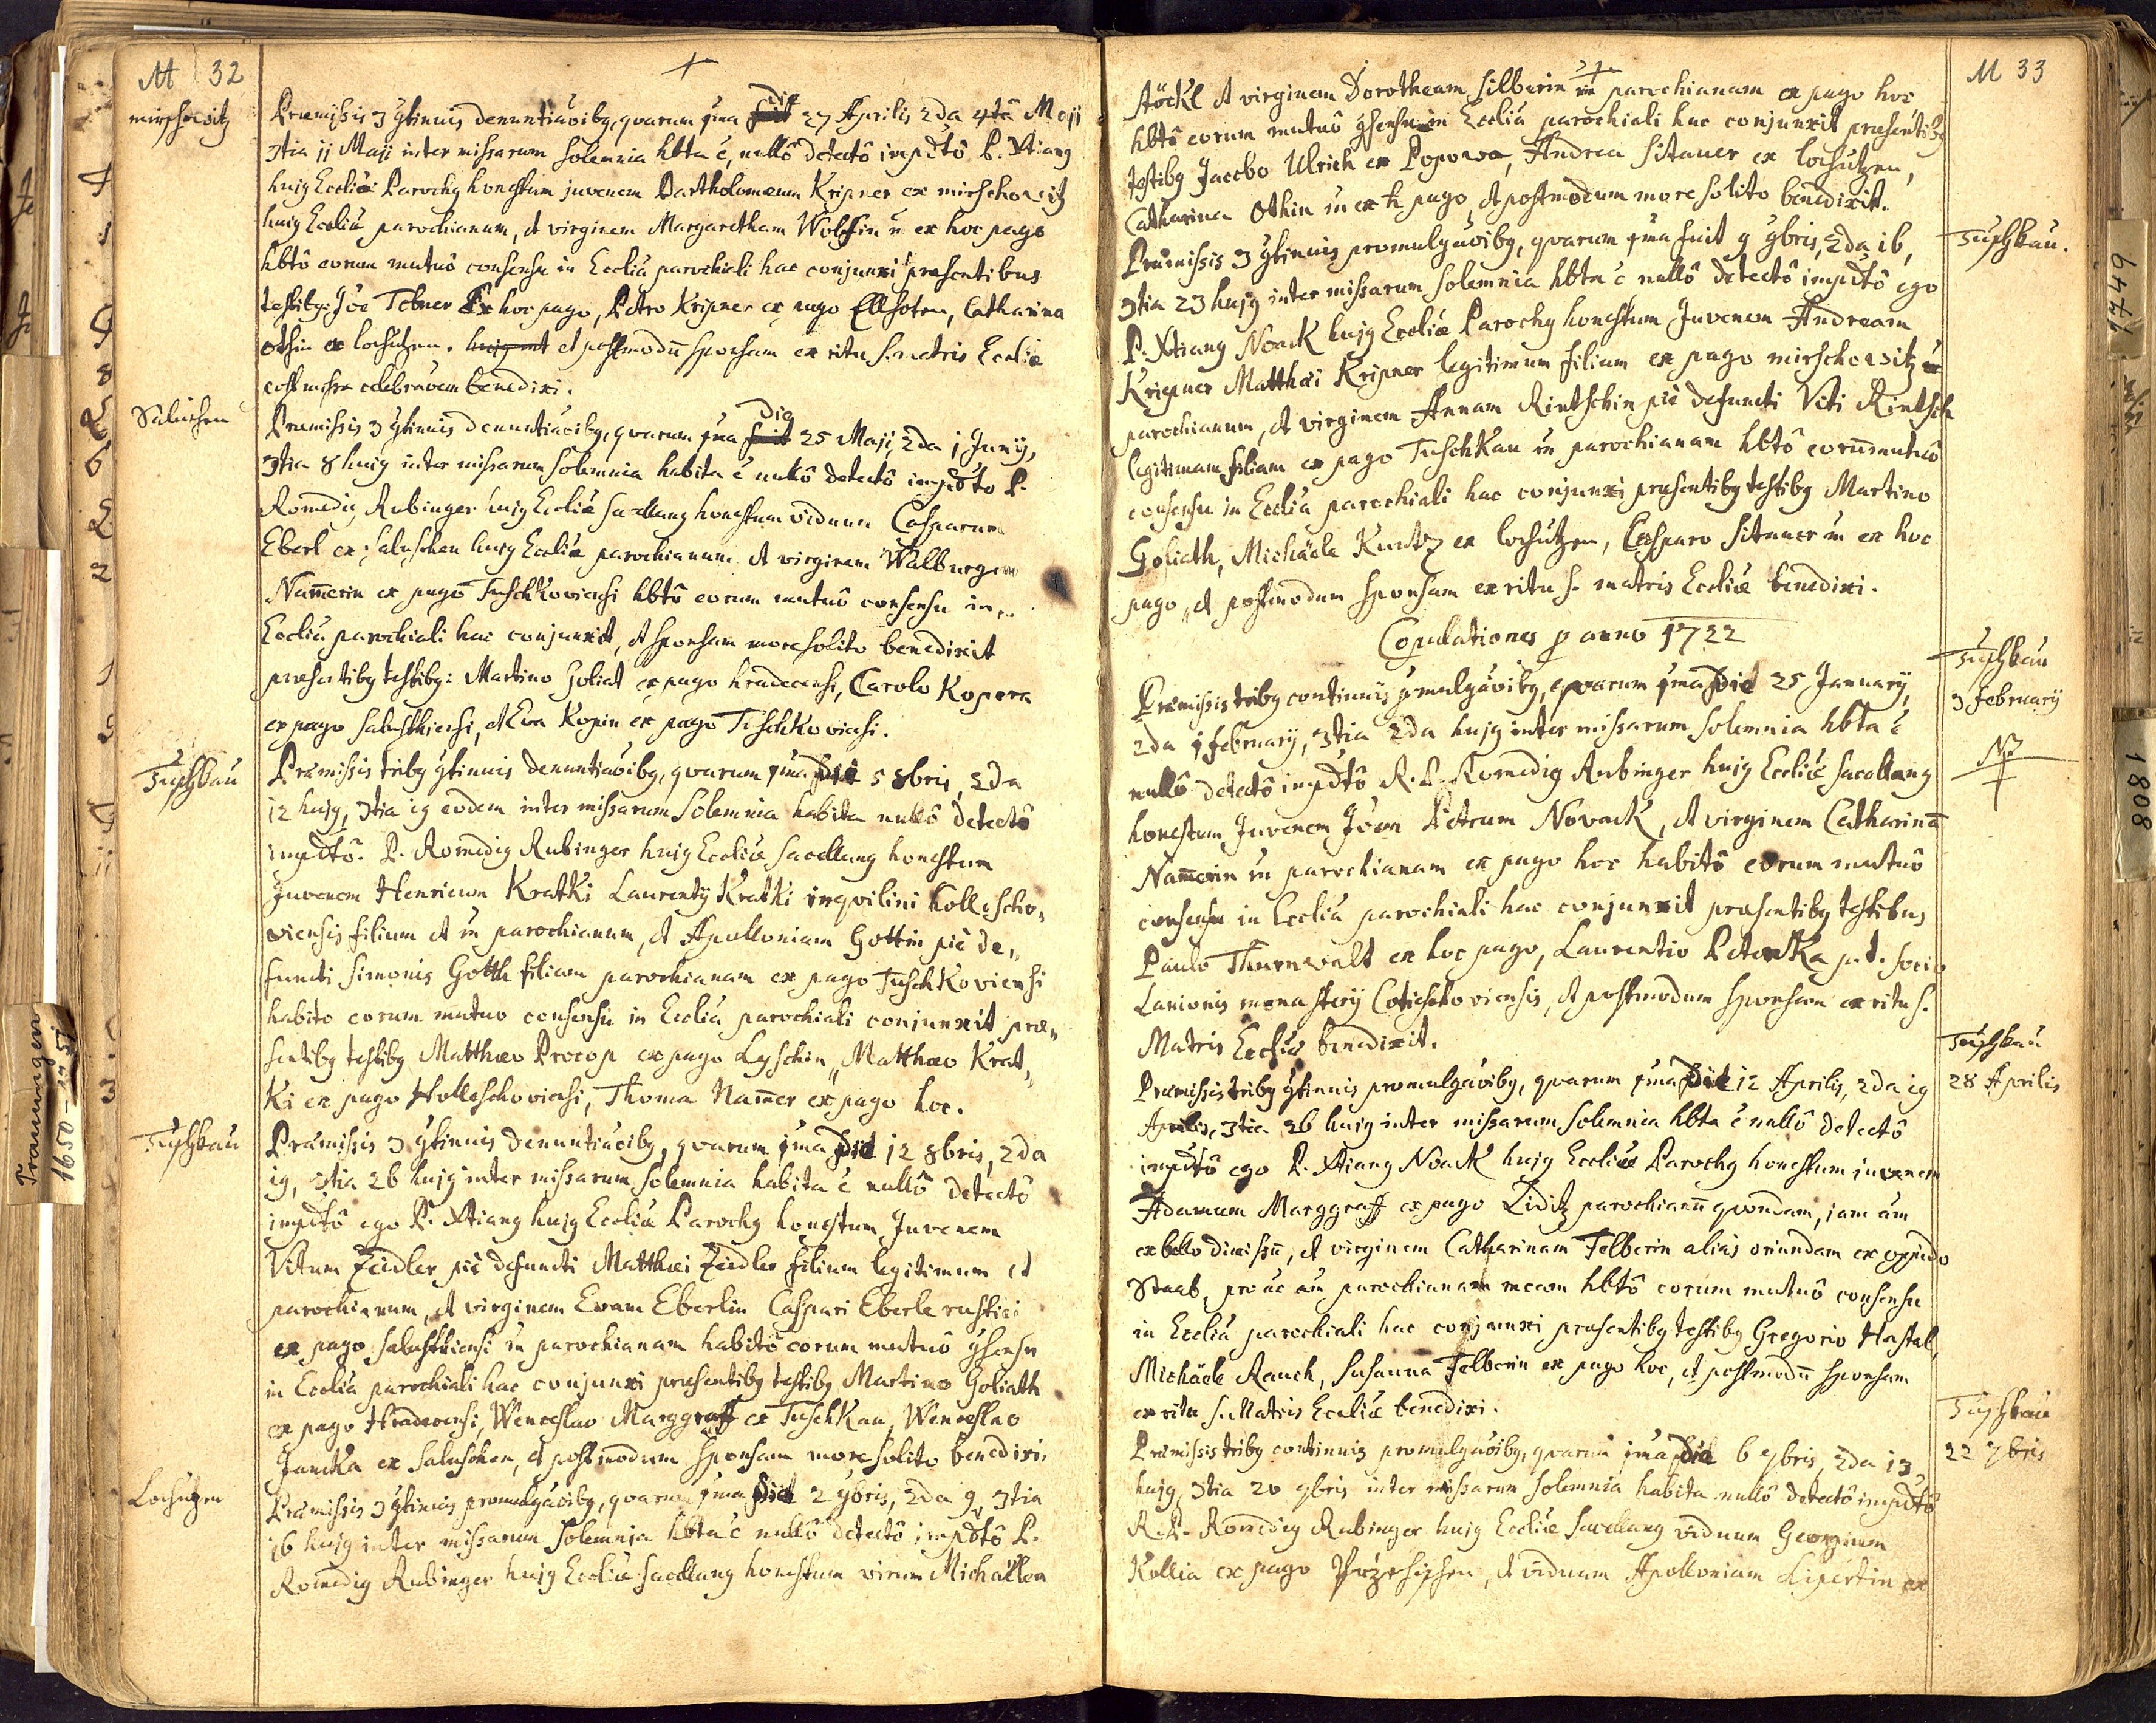 M 32
mirschowitz
Præmissis 3 9tinuis denuntiãoibg, qvarum 1ma die 27 Aprilis 2da 4ta Maji
3tia 11 Maji inter missarum solemnia hbta é, nullô detectô impdtô P. Xtiang
hujg Eccliæ Parochg honestum juvenem Bartholomæum Kripner ex mirschowitz
hujg Eccliæ parochianum, et virginem Margaretham Wolfin ex hoc pago
hbtô eorum mutuô consensu in Ecclia parochiali hac conjunxi præsentibus
testibg: Joe Tobner Ex hoc pago, Petro Kripner ex pago Ellhoten, Catharina
othin ex lochutzen. et postmodũ sponsam ex ritu s. matris Eccliæ
benedixi.
Saluschen
Præmissis 3 9tinuis denuntiãoibg, qvarum 1ma die 25 Maji, 2da 1 Junij,
3tia 8 hujg inter missarum solemnia habita é nullô detectô impdto P.
Romedig Rubinger hujg Eccliæ sacellang honestum viduum Casparum
Eberl ex saluschen hujg Eccliæ parochianum et virginem Walburgam
Nam̃erin ex pago Tuschkoviensi hbtô eorum mutuô consensu in
Ecclia parochiali hac conjunxit, et sponsam more solito benedixit
præsentibg testibg: Martino Goliat ex pago hradecensi, Carolo Kopera
ex pago saluschkiensi, et Eva Kopin ex pago Tuschkoviensi.
Tuschkau
Præmissis tribg 9tinuis denuntiãoibg, qvarum 1ma die 5 8bris, 2da
12 hujg, 3tia 19 eodem inter missarum solemnia habita nullô detectô
impdtô. P. Romedig Rubinger hujg Eccliæ sacellang honestum
Juvenem Henricum Kratki Laurentij Kratki inqvilini hollescho„
viensis filium et parochianum, et Apolloniam Gottin piè de„
functi simonis Gotth filiam parochianam ex pago Tuschkoviensi
habito eorum mutuo consensu in Ecclia parochiali conjunxit præ„
sentibg testibg Matthæo Procop ex pago Lyschin, Matthæo Krat„
Ki ex pago Holleschoviensi, Thoma Nam̃er ex pago hoc.
Tuschkau
Præmissis 3 9tinuis denuntiãoibg, qvarum 1ma die 12 8bris, 2da
19, 3tia 26 hujg inter missarum solemnia habita é nullô detectô
impdtô ego P. Xtiang hujg Eccliæ Parochg honestum Juvenem
Vitum Zeidler piè defuncti Matthæi Zeidler filium legitimum et
parochianum, et virginem Evam Eberlin Caspari Eberle rustici
ex pago saluschkiensi parochianam habitô eorum mutuô 9sensu
in Ecclia parochiali hac conjunxi præsentibg testibg Martino Goliath
ex pago Hradecensi, Wenceslao Marggraff ex Tuschkau, Wenceslao
Jancka ex saluschen, et postmodum sponsam more solito benedixi.
Lochutzen
Præmissis 3 9tinuis promulgãoibg, qvarum 1ma die 2 9bris, 2da 9, 3tia
16 hujg inter missarum solemnia hbta é nullô detectô impdtô P.
Romedig Rubinger hujg Eccliæ sacellang honestum virum Michaëlem
M 33
stöckl et virginem Dorotheam silberin parochianam ex pago hoc
hbtô eorum mutuô 9sensu in Ecclia parochiali hac conjunxit præsentibg
testibg Jacobo Ulrich ex Popowa, Andrea sitauer ex lochutzen,
Catharina Othin ex h pago, et postmodum more solito benedixit.
Tuschkau.
Præmissis 3 9tinuis promulgãoibg, qvarum 1ma fuit 9 9bris, 2da 16,
3tia 23 hujg inter missarum solemnia hbta é nullô detectô impdtô ego
P. Xtiang Noack hujg Eccliæ Parochg honestum Juvenem Andream
Kripner Matthæi Kripner legitimum filium ex pago mirschowitz
parochianum, et virginem Annam Rintschin piè defuncti Viti Rintsch
legitimam filiam ex pago Tuschkau parochianam hbtô eorũ mutuô
consensu in Ecclia parochiali hac conjunxi præsentibg testibg Martino
Goliath, Michaële Kuntz ex lochutzen, Casparo sitauer ex hoc
pago, et postmodum sponsam ex ritu s. matris Eccliæ benedixi.
Copulationes p anno 1722
Tuschkau
3 February
NB
Præmissis tribg continuis pmulgãoibg, qvarum 1ma die 25 January,
2da 1 february, 3tia 2da hujg inter missarum solemnia hbta é
nullô detectô impdtô R. P. Romedig Rubinger hujg Eccliæ sacellang
honestum Juvenem Joan Petrum Novack, et virginem Catharinã
Nam̃erin parochianam ex pago hoc habitô eorum mutuô
consensu in Ecclia parochiali hac conjunxit præsentibg testibus
Paulo Thurnwalt ex hoc pago, Laurentio Peterka p. t. socio
Lanionis monastery Cotieschoviensis, et postmodum sponsam ex ritu s.
Matris Eccliæ benedixit.
Tuschkau
28 Aprilis
Præmissis tribg 9tinuis promulgãoibg, qvarum 1ma die 12 Aprilis, 2da 19
Aprilis, 3tia 26 hujg inter missarum solemnia hbta é nullô detectô
impdtô ego P. Xtiang Noack hujg Eccliæ Parochg honestum juvenem
Adamum Marggraff ex pago Liditz parochianũ qvondam, jam
ex bello dimissũ, et virginem Catharinam Felberin alias oriundam ex oppido
Staab, parochianam meam hbtô eorum mutuô consensu
in Ecclia parochiali hac conjunxi præsentibg testibg Gregorio Hastal,
Michaële Rauch, susanna Felberin ex pago hoc, et postmodũ sponsam
ex ritu s. Matris Eccliæ benedixi.
Tuschkau
22 7bris
Præmissis tribg continuis promulgãoibg, qvarum 1ma die 6 7bris, 2da 13
hujg, 3tia 20 7bris inter missarum solemnia habita nullô detectô impdtô
R. P. Romedig Rubinger hujg Eccliæ sacellang viduum Georgium
Kollia ex pago, et viduam Apolloniam Lipertin ex
Trauungen
1650-1751
1749
1808